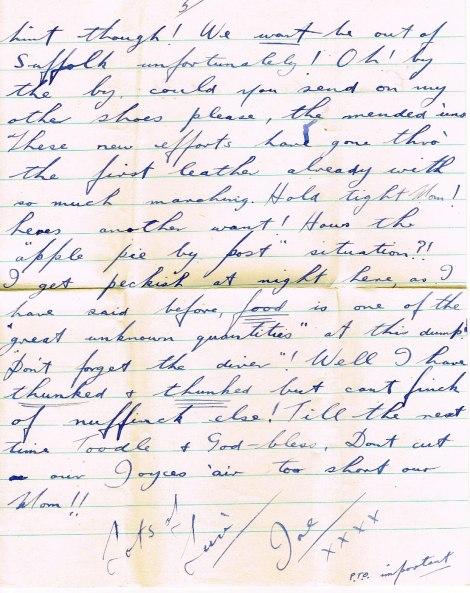 5/
hint though! We wont be out of
Suffolk unfortunately! Oh! by
the by, could you send on my
other shoes please, the mended 'uns
These new efforts have gone thro'
the first leather already with
so much marching. Hold tight Mom!
heres another want! Hows the
"apple pie by post" situation?!
I get peckish at night here, as I
have said before, food is one of the
"great unknown quantities" at this dump!
"Don't forget the diver"! Well I have
thunked & thunked but cant finck
of nuffinck else! Till the next
time Toodle & God-bless, Dont cut
our Joyces 'air too short our
Mom!!
Lots of Luv / Joe / xxxx
P.T.O. important